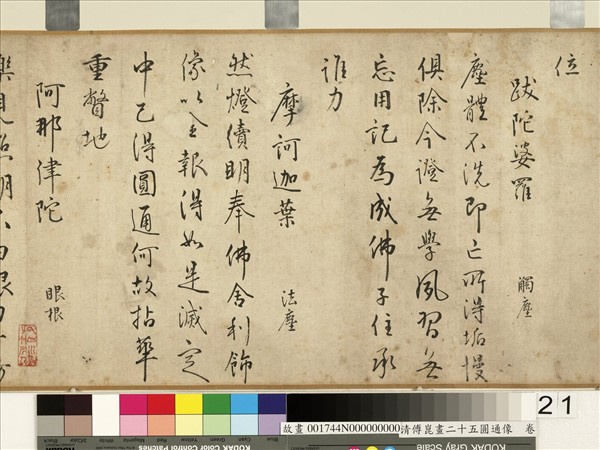 位
跋陀婆羅 觸塵
塵體不洗即亡所得垢慢
俱除今證無學夙習無
忘用記為成佛子住承
誰力
摩訶迦葉 法塵
然燈續明奉佛舍利飾
像以金報得如是滅定
中已得圓通何故拈華
重瞥地
阿那律陀 眼根
樂見照明
21
故畫 001744N000000000 清傅崑畫二十五圓通像 卷
KODAK Color Control Patches
Blue Cyan Green Yellow Red Magenta White 3/Color Black
KODAK Gray Scale